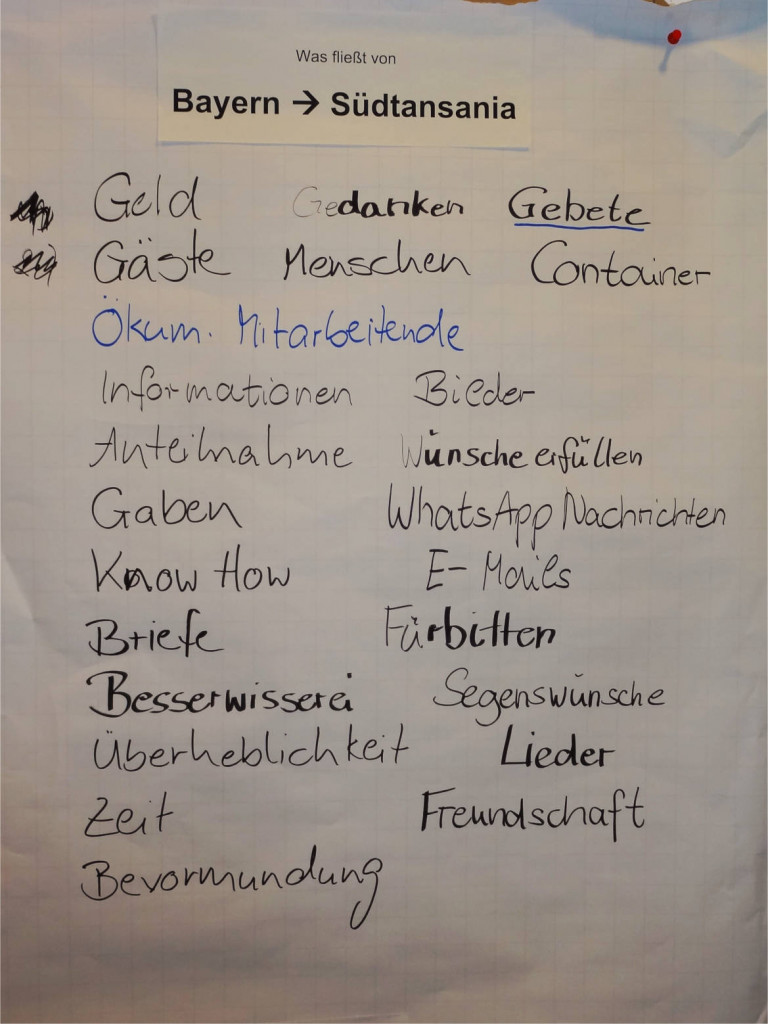 Was fließt von
Bayern → Südtansania
Geld Gedanken Gebete
Gäste Menschen Container
Ökum. Mitarbeitende
Informationen Bilder
Anteilnahme Wünsche erfüllen
Gaben WhatsApp Nachrichten
Know How E-Mails
Briefe Fürbitten
Besserwisserei Segenswünsche
Überheblichkeit Lieder
Zeit Freundschaft
Bevormundung